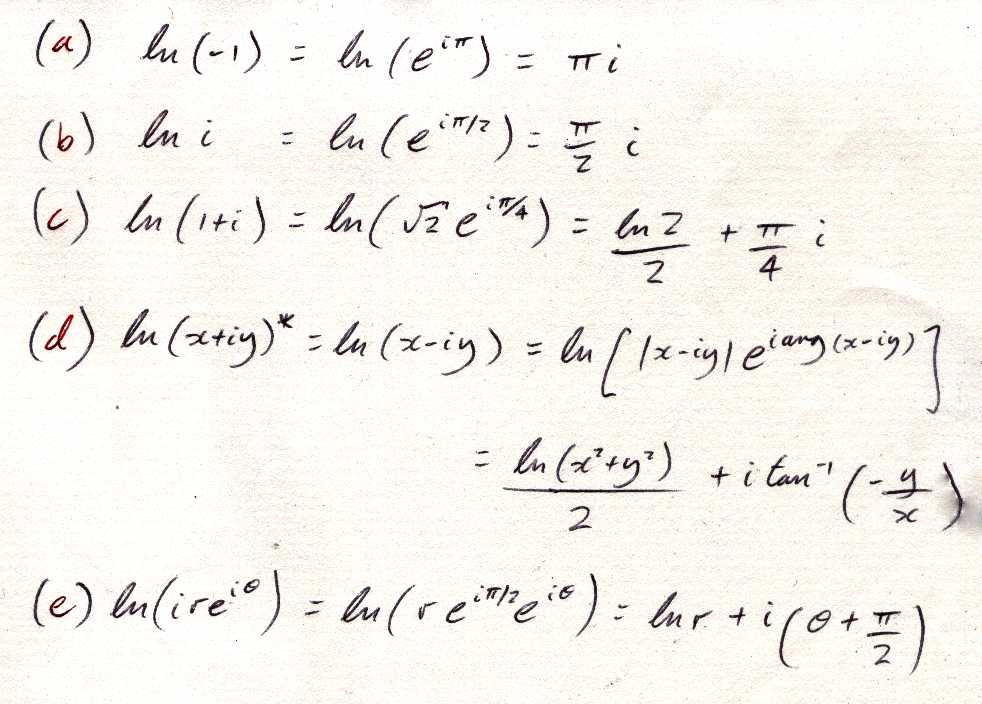 (a) ln(-1) = ln(e^{iπ}) = πi
(b) ln i = ln(e^{iπ/2}) = \frac{π}{2} i
(c) ln(1+i) = ln(√2 e^{iπ/4}) = \frac{ln 2}{2} + \frac{π}{4} i
(d) ln(x+iy)^* = ln(x-iy) = ln[|x-iy| e^{i arg(x-iy)}]
= \frac{ln(x²+y²)}{2} + i tan^{-1}(-\frac{y}{x})
(e) ln(ire^{iθ}) = ln(r e^{iπ/2} e^{iθ}) = ln r + i(θ + \frac{π}{2})